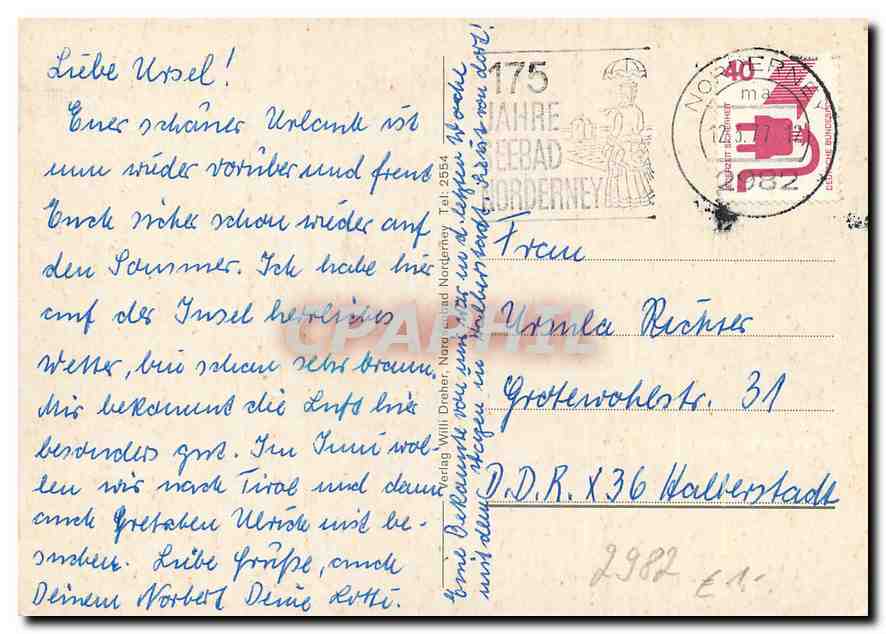 Liebe Ursel!
Euer schöner Urlaub ist
nun wieder vorüber und freut
Euch sicher schon wieder auf
den Sommer. Ich habe hier
auf der Insel herrliches
Wetter, bin schon sehr braun.
Mir bekommt die Luft hier
besonders gut. Im Juni wol-
len wir nach Tirol und dann
auch Gretchen Ulrich mit be-
suchen. Liebe Grüße, auch
Deinem Norbert Deine Lotti.
Eine Bekannte von uns war in d. letzten Woche
mit dem Wagen in Halberstadt
von dort!
Verlag Willi Dreher, Nordseebad Norderney Tel: 2554
175
JAHRE
SEEBAD
NORDERNEY
NORDERNEY
ma
2982
40
DEUTSCHE BUNDESPOST
JEDERZEIT SICHERHEIT
Frau
Ursula Richter
Grotewohlstr. 31
D.D.R. X36 Halberstadt
2982 € 1.-
CPARHIL